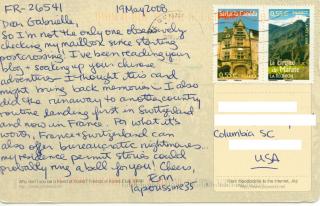 FR-26541 19May2008
Dear Gabrielle,
So I'm not the only one obsessively
checking my mailbox since starting
postcrossing! I've been reading your
blog + soaking up your chinese
adventures - I thought this card
might bring back memories. I also
did the runaway to another country
routine landing first in Switzerland
and now in France. For what it's
worth, France + Switzerland can
also offer bureaucratic nightmares...
my residence permit stories could
probably ring a bell for you! Cheers,
Erin
laparussime35
Sarlat la Canéda
0,55 €
Le Cirque
de Mafate
La Réunion
0,55 €
Columbia SC
USA